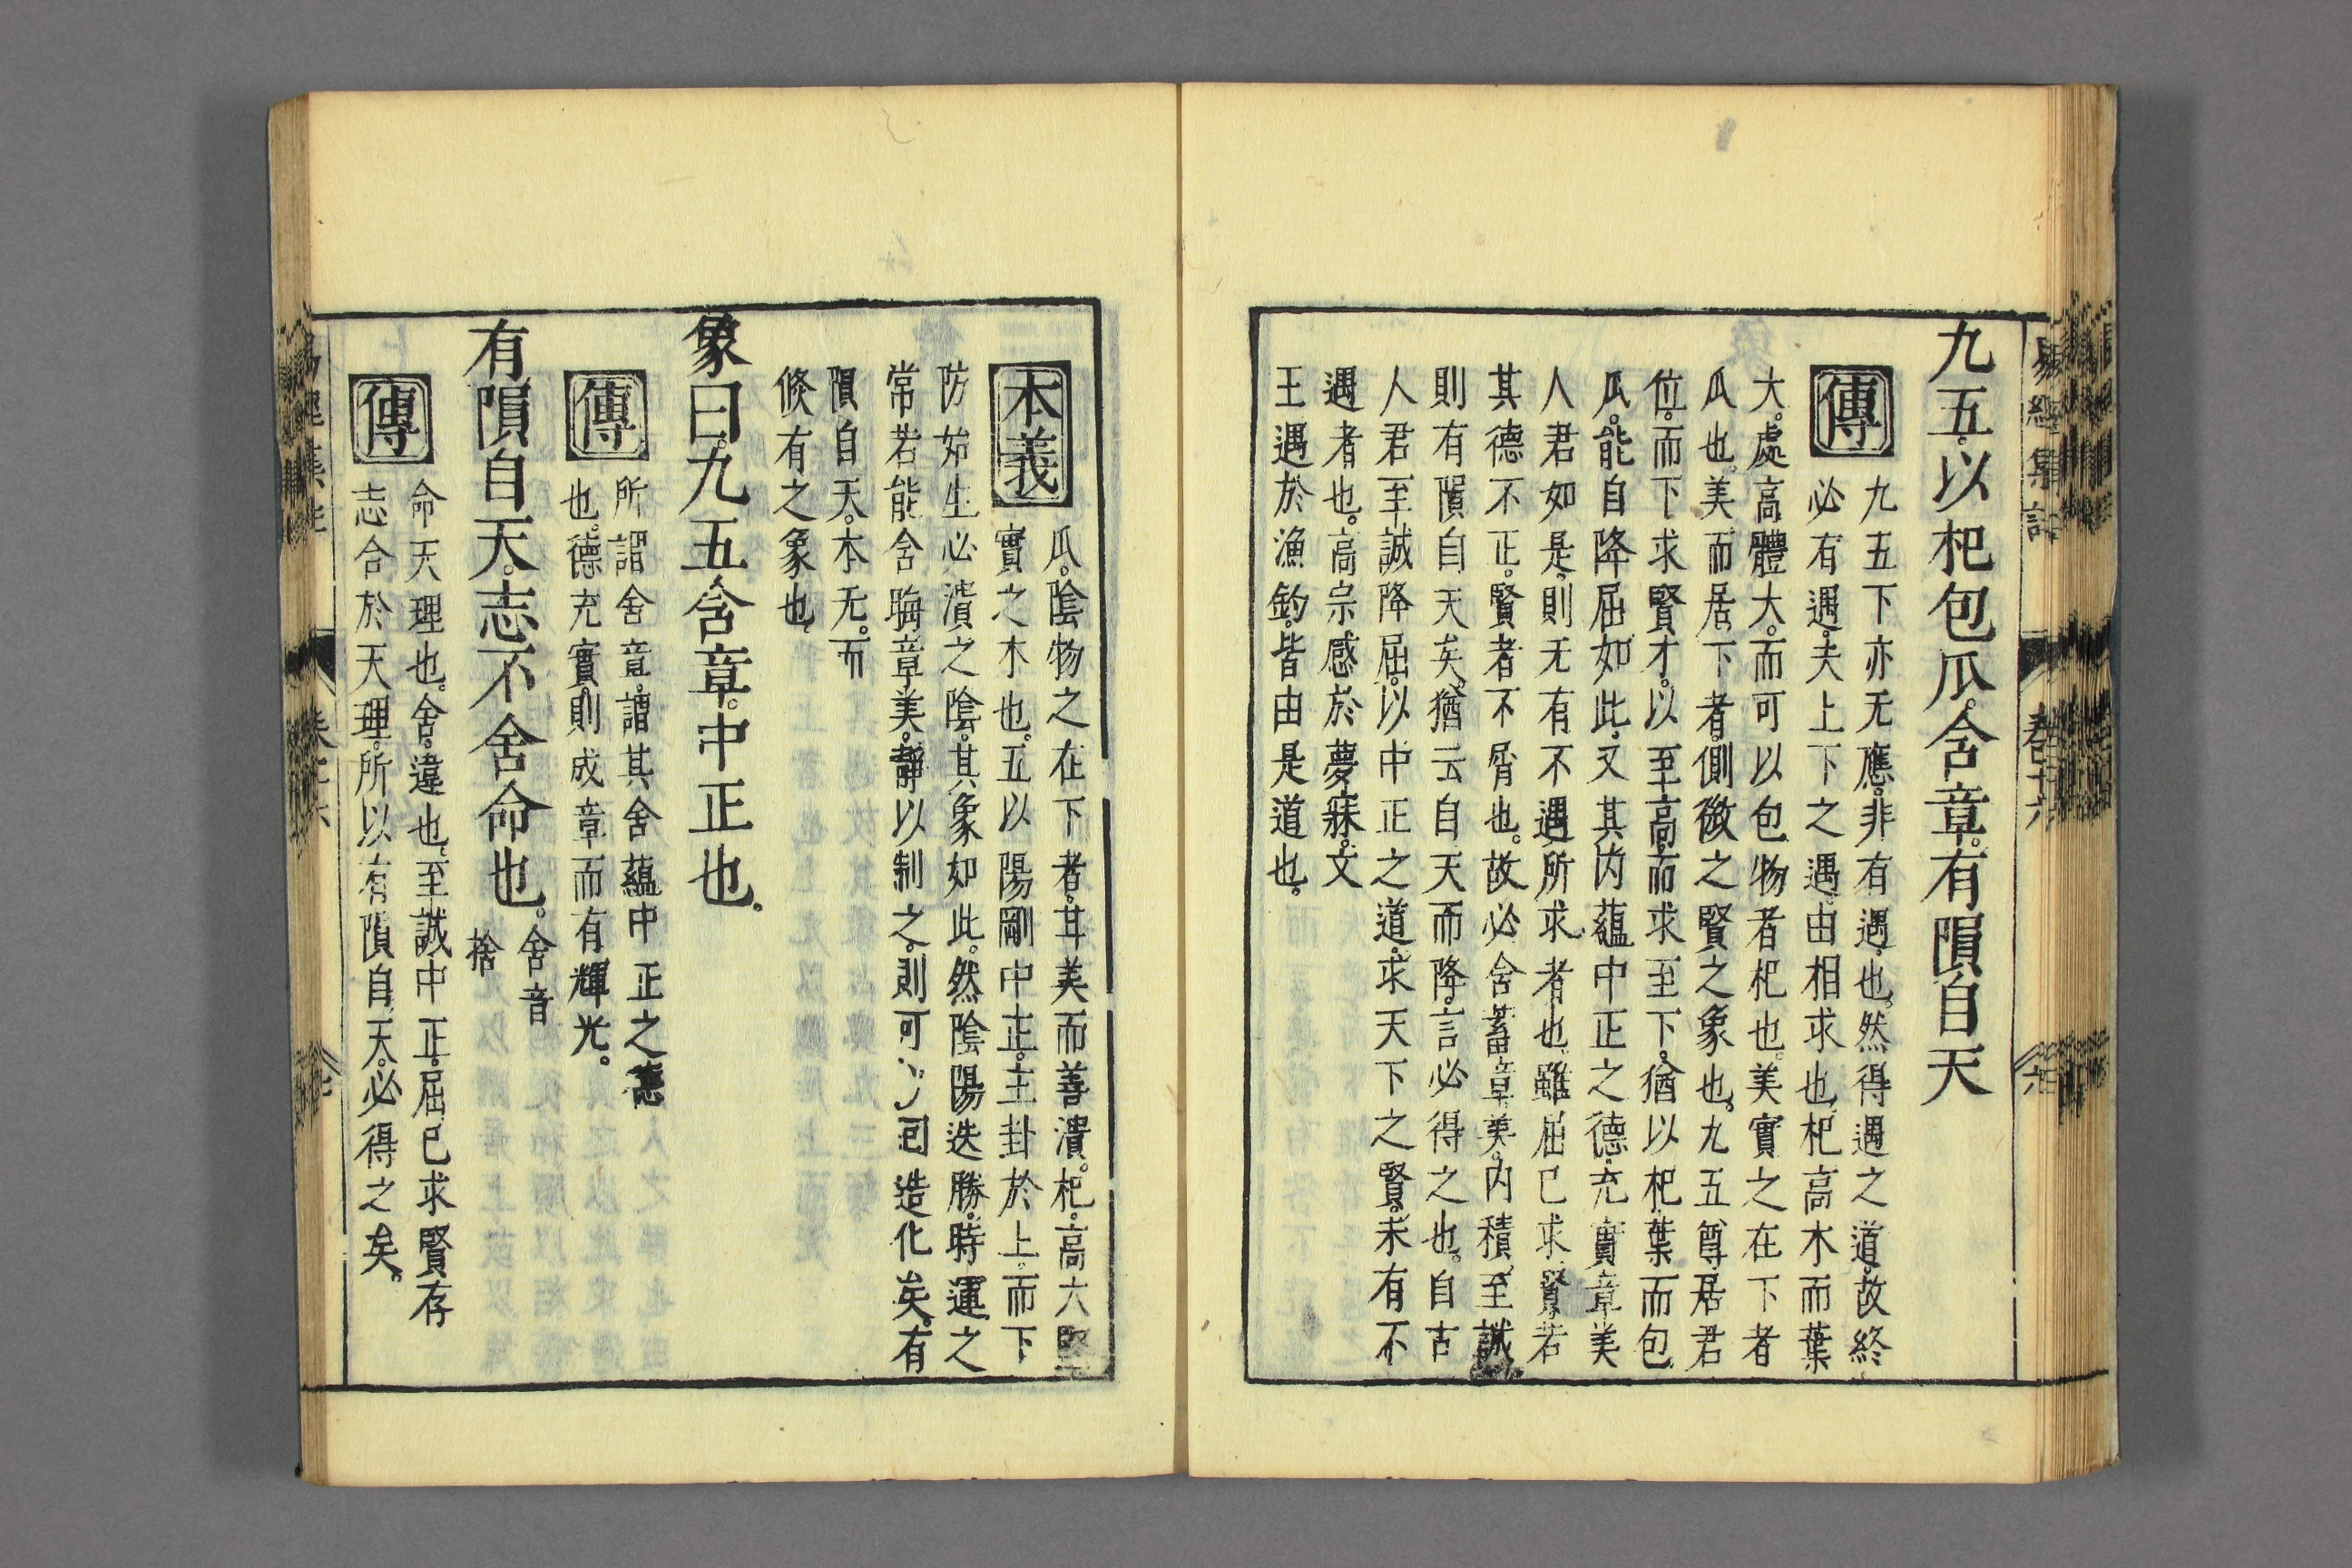 易經集註
卷十六
九五。以杞包瓜。含章。有隕自天
傳
九五下亦无應。非有遇也。然得遇之道。故終
必有遇。夫上下之遇。由相求也。杞高木而葉
大。處高體大。而可以包物者杞也。美實之在下者
瓜也。美而居下者。側微之賢之象也。九五尊居君
位。而下求賢才。以至高而求至下。猶以杞葉而包
瓜。能自降屈如此。又其内蘊中正之德。充實章美
人君如是。則无有不遇所求者也。雖屈己求賢。若
其德不正。賢者不屑也。故必含蓄章美。内積至誠
則有隕自天矣。猶云自天而降。言必得之也。自古
人君至誠降屈。以中正之道。求天下之賢。未有不
遇者也。高宗感於夢寐。文
王遇於漁釣。皆由是道也。
本義
瓜。陰物之在下者。甘美而善潰。杞。高大堅
實之木也。五以陽剛中正。主卦於上。而下
防始生必潰之陰。其象如此。然陰陽迭勝。時運之
常。若能含晦章美。靜以制之。則可回造化矣。有
隕自天。本无。而
倐有之象也。
象曰。九五含章。中正也。
傳
所謂含章。謂其含蘊中正之德
也。德充實。則成章而有輝光。
有隕自天。志不舍命也。
舍音
捨
傳
命天理也。舍。違也。至誠中正。屈己求賢。存
志合於天理。所以有隕自天。必得之矣。